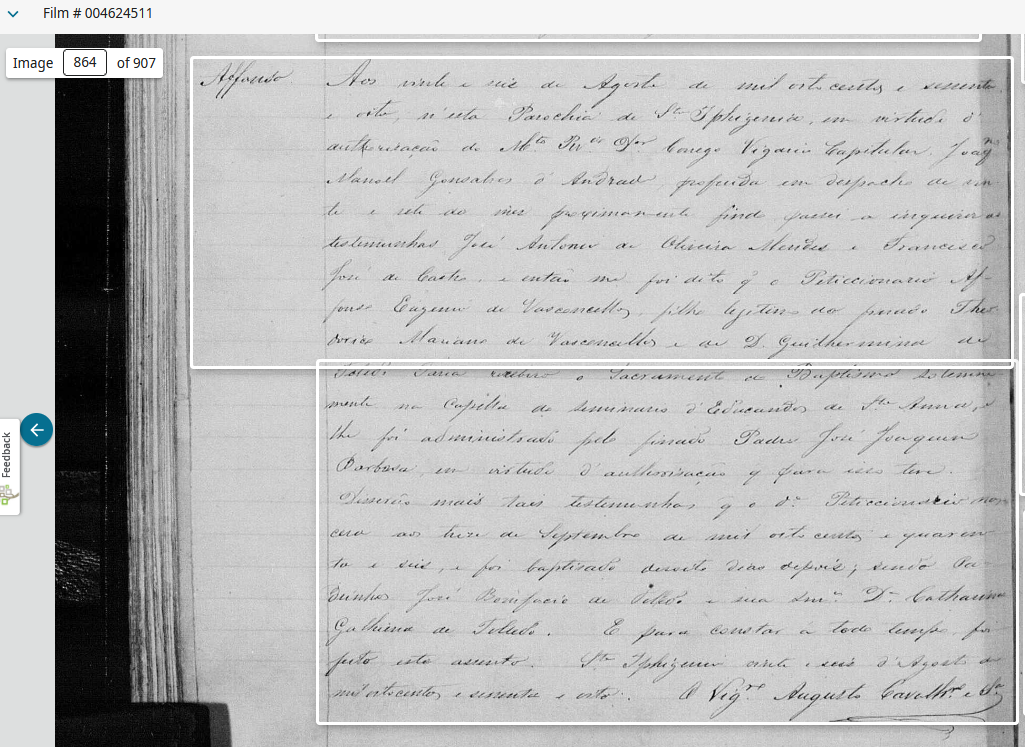 Film # 004624511
Image 864 of 907
Feedback
Affonso
Aos vinte e seis de Agosto de mil oito centos e sessenta
e oito, n'esta Parochia de Sta Iphigenia, em virtude d'
autherisação do M.to Rv.or Conego Vigario Capitular Joaq.m
Manoel Gonsalves d'Andrade, proferida em despacho de vin
te e sete do mez proximamente findo passei a inquirir as
testemunhas José Antonio de Oliveira Mendes e Francisco
José de Castro, e então me foi dito q o Peticcionario Af-
fonso Eugenio de Vasconcellos, filho legitimo do finado The
dorico Mariano de Vasconcellos e de D. Guilhermina de
Toledo Faria recebeo o Sacramento do Baptismo solemne
mente na Capella do Seminario d'Educandos de Sta Anna, e
lhe foi administrado pelo finado Padre José Joaquim
Barbosa, em virtude d'autherisação q para isso teve.
Disserão mais tais testemunhas q o d.o Peticcionario nas
ceu aos treze de Septembro de mil oito centos e quaren
ta e seis, e foi baptisado desoito dias depois; sendo Pa-
drinhos José Bonifacio de Toledo e sua Irmã D. Catharina
de Toledo. E para constar a todo tempo foi
feito este asento. Sta Iphigenia vinte e seis d'Agosto de
mil oito centos e sessenta e oito. O Vig.ro Augusto Cavalh.ro e S.a